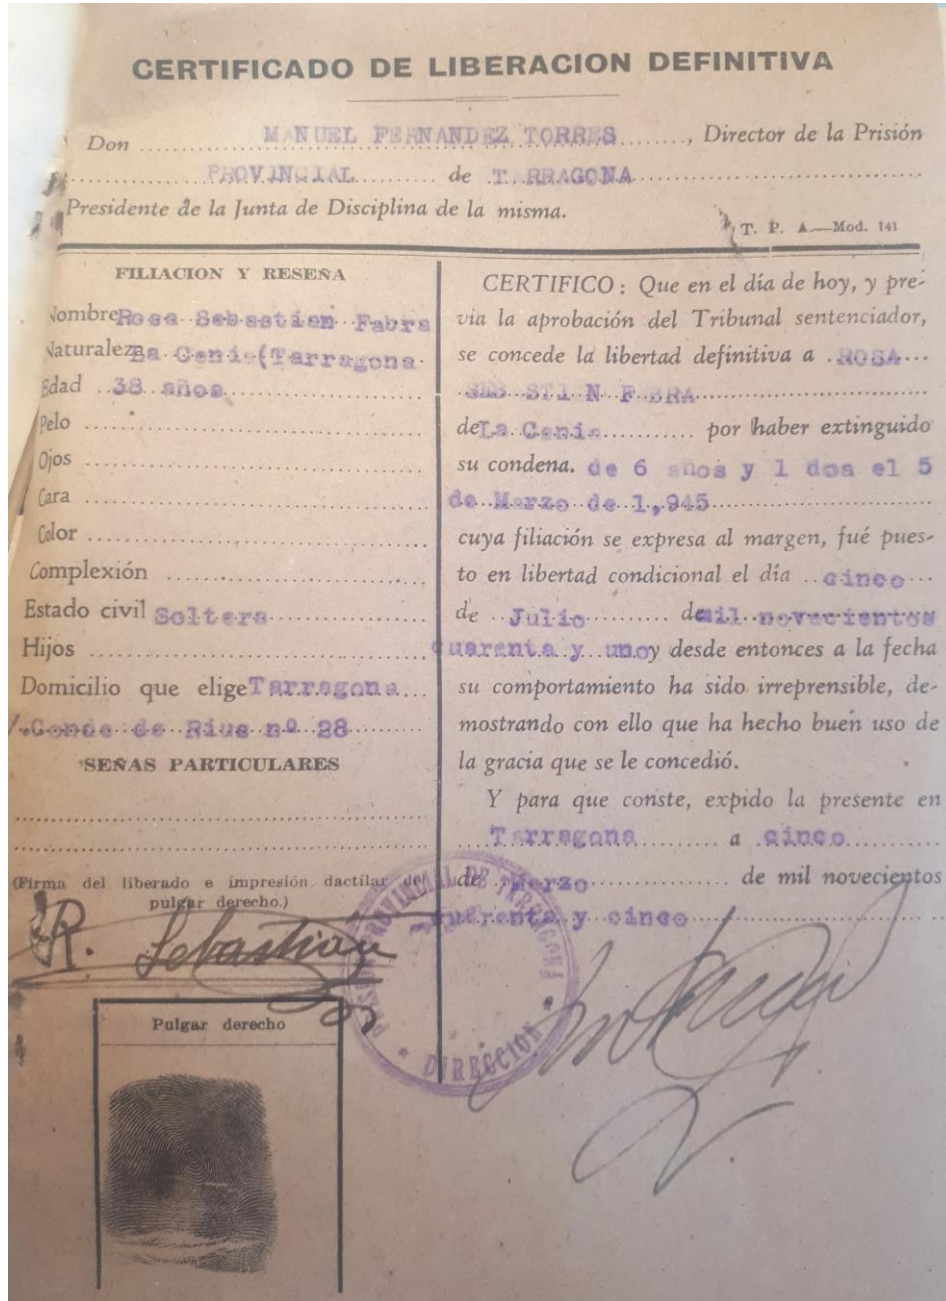 CERTIFICADO DE LIBERACION DEFINITIVA
Don MANUEL FERNANDEZ TORRES, Director de la Prisión
PROVINCIAL de TARRAGONA
Presidente de la Junta de Disciplina de la misma.
T. P. A.—Mod. 141
FILIACION Y RESEÑA
Nombre Rosa Sebastian Fabra
Naturaleza La Cenia(Tarragona
Edad 38 años
Pelo
Ojos
Cara
Color
Complexión
Estado civil Soltera
Hijos
Domicilio que elige Tarragona
Conde de Rius nº 28
SEÑAS PARTICULARES
(Firma del liberado e impresión dactilar del
pulgar derecho.)
R. Sebastian
Pulgar derecho
CERTIFICO: Que en el día de hoy, y pre-
via la aprobación del Tribunal sentenciador,
se concede la libertad definitiva a ROSA
SEB STI N F BRA
de La Cenia por haber extinguido
su condena. de 6 años y 1 doa el 5
de Marzo de 1,945
cuya filiación se expresa al margen, fué pues-
to en libertad condicional el día cinco
de Julio de mil novecientos
cuarenta y uno y desde entonces a la fecha
su comportamiento ha sido irreprensible, de-
mostrando con ello que ha hecho buen uso de
la gracia que se le concedió.
Y para que conste, expido la presente en
Tarragona a cinco
de Marzo de mil novecientos
cuarenta y cinco
PRISION PROVINCIAL DE TARRAGONA
* DIRECCION *